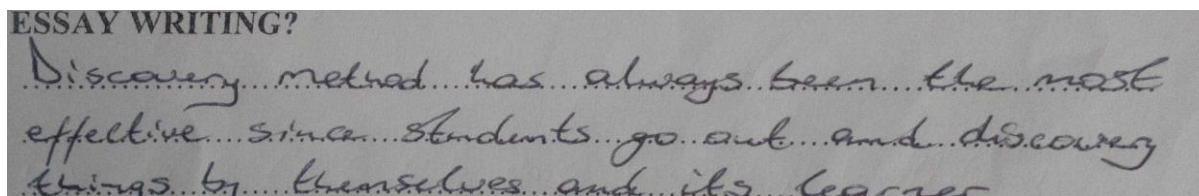 ESSAY WRITING?
Discovery method has always been the most
effective since students go out and discovery
things by themselves and its learner